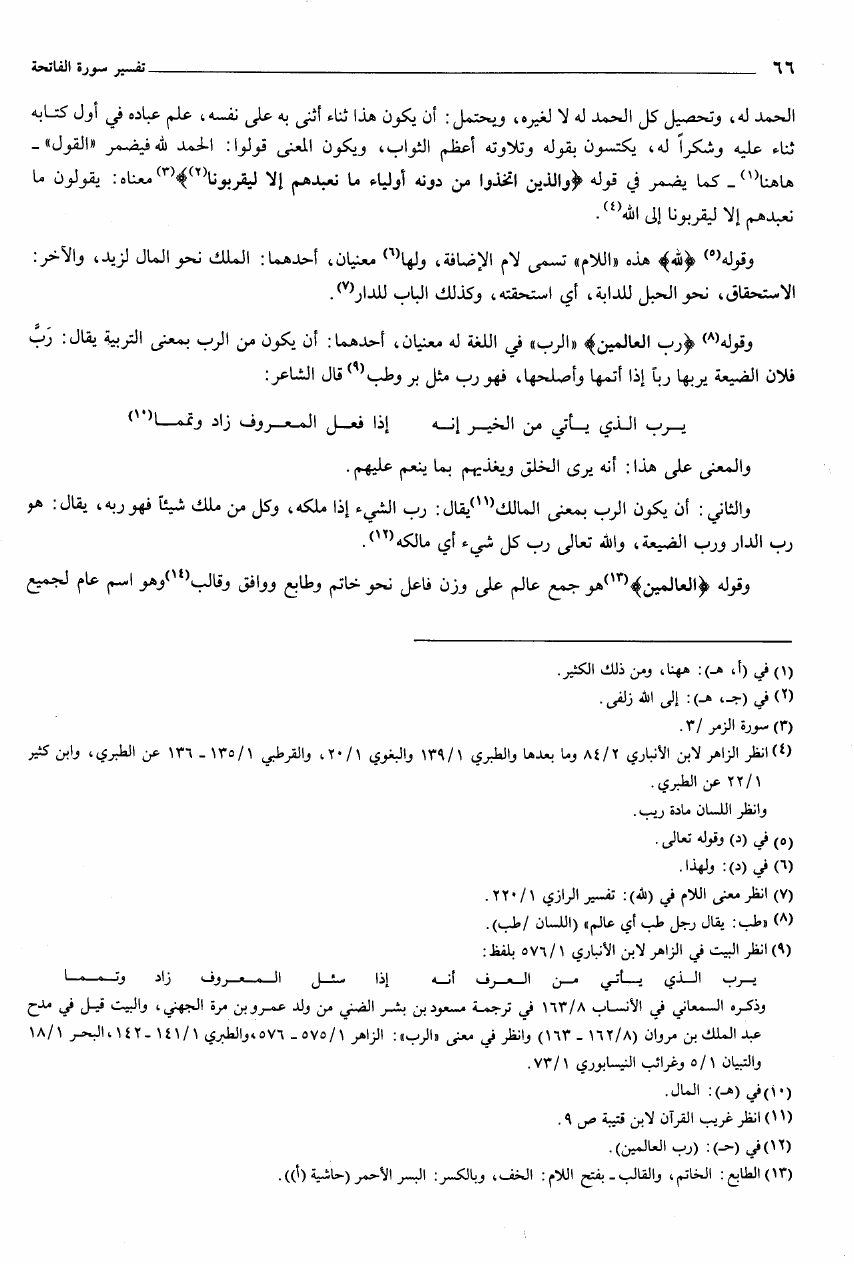 ٦٦ تفسير سورة الفاتحة
الحمد له، وتحصيل كل الحمد له لا لغيره، ويحتمل: أن يكون هذا ثناء أثنى به على نفسه، علم عباده في أول كتابه
ثناء عليه وشكراً له، يكتسون بقوله وتلاوته أعظم الثواب، ويكون المعنى قولوا: الحمد لله فيضمر «القول» ـ
هاهنا(١) ـ كما يضمر في قوله ﴿والذين اتخذوا من دونه أولياء ما نعبدهم إلا ليقربونا(٢)﴾(٣) معناه: يقولون ما
نعبدهم إلا ليقربونا إلى الله(٤).
وقوله(٥) ﴿لله﴾ هذه «اللام» تسمى لام الإضافة، ولها(٦) معنيان، أحدهما: الملك نحو المال لزيد، والآخر:
الاستحقاق، نحو الحبل للدابة، أي استحقته، وكذلك الباب للدار(٧).
وقوله(٨) ﴿رب العالمين﴾ «الرب» في اللغة له معنيان، أحدهما: أن يكون من الرب بمعنى التربية يقال: رَبَّ
فلان الضيعة يربها رباً إذا أتمها وأصلحها، فهو رب مثل بر وطب(٩) قال الشاعر:
يـرب الـذي يـأتي من الخيـر إنـه إذا فعـل المـعـروف زاد وتممـا(١٠)
والمعنى على هذا: أنه يرى الخلق ويغذيهم بما ينعم عليهم.
والثاني: أن يكون الرب بمعنى المالك(١١)يقال: رب الشيء إذا ملكه، وكل من ملك شيئاً فهو ربه، يقال: هو
رب الدار ورب الضيعة، والله تعالى رب كل شيء أي مالكه(١٢).
وقوله ﴿العالمين﴾(١٣)هو جمع عالم على وزن فاعل نحو خاتم وطابع ووافق وقالب(١٤)وهو اسم عام لجميع
(١) في (أ، هـ): ههنا، ومن ذلك الكثير.
(٢) في (جـ، هـ): إلى الله زلفى.
(٣) سورة الزمر /٣.
(٤) انظر الزاهر لابن الأنباري ٨٤/٢ وما بعدها والطبري ١٣٩/١ والبغوي ٢٠/١، والقرطبي ١٣٥/١ ـ ١٣٦ عن الطبري، وابن كثير
٢٢/١ عن الطبري.
وانظر اللسان مادة ريب.
(٥) في (د) وقوله تعالى.
(٦) في (د): ولهذا.
(٧) انظر معنى اللام في (لله): تفسير الرازي ٢٢٠/١.
(٨) «طب: يقال رجل طب أي عالم» (اللسان /طب).
(٩) انظر البيت في الزاهر لابن الأنباري ٥٧٦/١ بلفظ:
يـرب الـذي يـأتي مـن العـرف أنـه إذا سئـل المـعـروف زاد وتـمـمـا
وذكره السمعاني في الأنساب ١٦٣/٨ في ترجمة مسعود بن بشر الضني من ولد عمرو بن مرة الجهني، والبيت قيل في مدح
عبد الملك بن مروان (١٦٢/٨ ـ ١٦٣) وانظر في معنى «الرب»: الزاهر ٥٧٥/١ ـ ٥٧٦، والطبري ١٤١/١ ـ ١٤٢، البحر ١٨/١
والتبيان ٥/١ وغرائب النيسابوري ٧٣/١.
(١٠) في (هـ): المال.
(١١) انظر غريب القرآن لابن قتيبة ص ٩.
(١٢) في (حـ): (رب العالمين).
(١٣) الطابع: الخاتم، والقالب ـ بفتح اللام: الخف، وبالكسر: البسر الأحمر (حاشية (أ)).